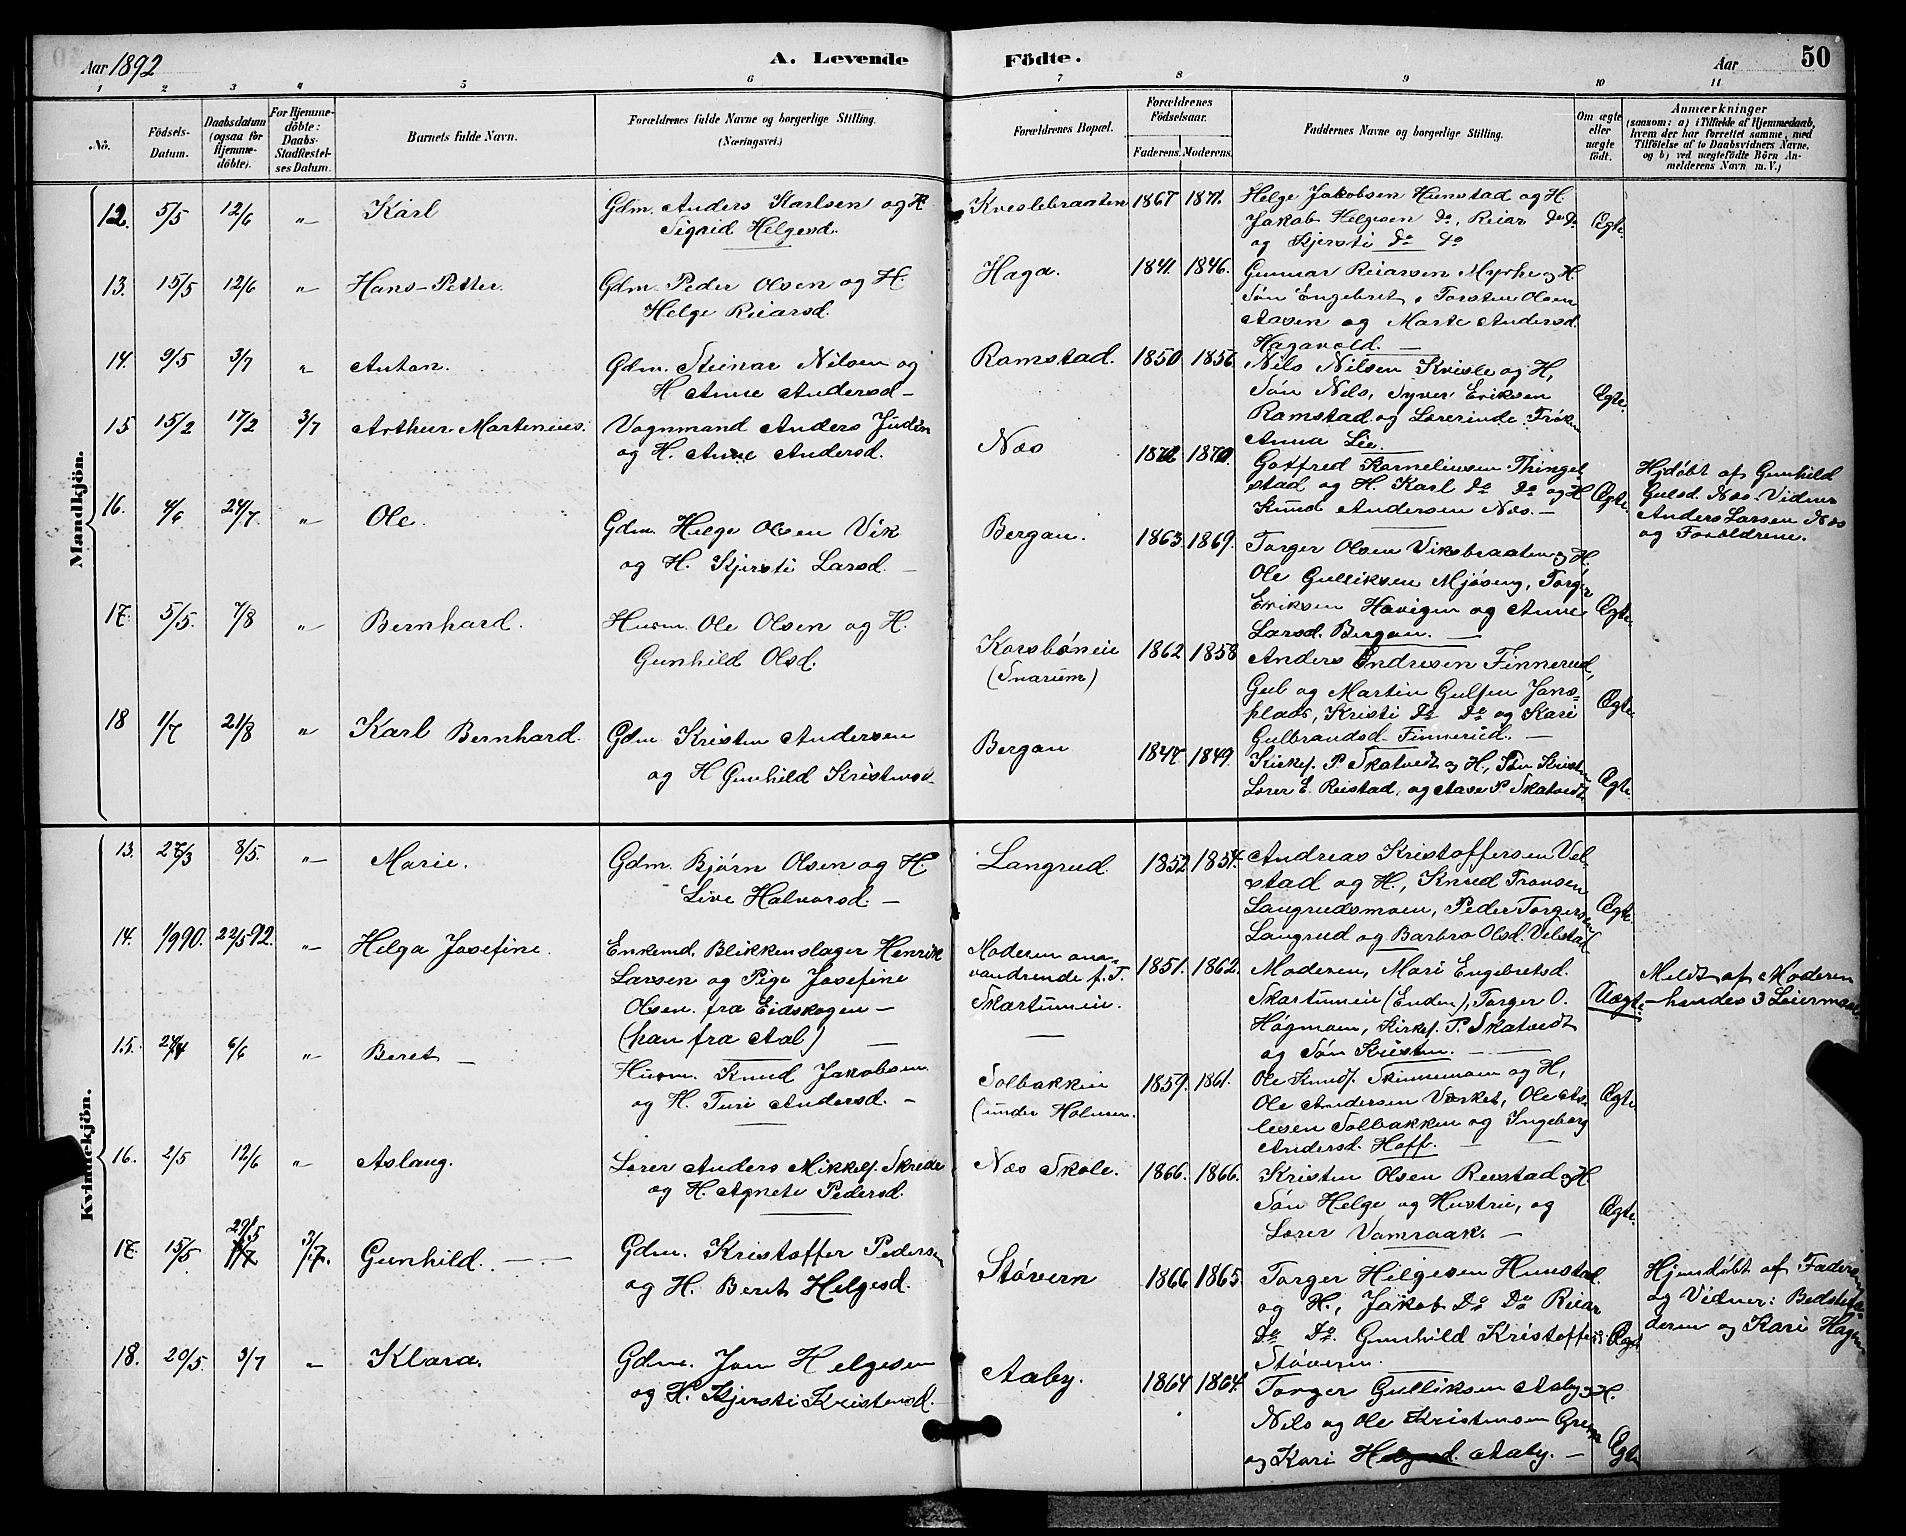 Aar 1892
A. Levende
Födte.
Aar
50
1 2 3 4 5 6 7 8 9 10 11
No.
Födsels-Datum.
Daabsdatum (ogsaa for Hjemmedöbte).
For Hjemmedöbte: Daabs-Stadfæstelses Datum.
Barnets fulde Navn.
Forældrenes fulde Navne og borgerlige Stilling. (Næringsvei.)
Forældrenes Bopæl.
Forældrenes Födselsaar.
Faderens. Moderens.
Faddernes Navne og borgerlige Stilling.
Om ægte eller uægte födt.
Anmærkninger
(saasom: a) i Tilfælde af Hjemmedaab,
hvem der har forrettet samme, med
Tilföielse af to Daabsvidners Navne,
og b) ved uægtefödte Börn An-
melderens Navn m. V.)
Mandkjön.
12. 5/5 12/6 " Karl
Gdm. Anders Karlsen og H.
Sigrid Helgesd.
Kveslebraaten 1867 1871.
Helge Jakobsen Hunstad og H
Jakob Helgesen do, Reiar do do
og Kjersti do do
Ægte.
13. 15/5 12/6 " Hans-Petter.
Gdm. Peder Olsen og H.
Helge Reiarsd.
Haga. 1841. 1846.
Gunnar Reiarsen Myrhe og H.
Søn Engebret, Torsten Olsen
Aasen og Marte Andersd.
Hagavold. —
14. 9/5 3/7 " Anton.
Gdm. Steinar Nilsen og
H Anne Andersd —
Ramstad. 1850 1856.
Nils Nilsen Kvisle og H,
Søn Nils, Syver Eriksen
Ramstad og Lærerinde Frøken
Anna Lie.
Ægte.
15 15/2 17/2 3/7 Arthur Martinius.
Vognmand Anders Juden
og H. Anne Andersd.
Næs 1872 1870.
Gotfred Korneliusen Thingel-
stad og H. Karl do do og H
Knud Andersen Næs. —
Ægte.
Hjdøbt af Gunhild
Gulsd. Næs. Vidner
Anders Larsen Næs
og Forældrene.
16. 4/6 24/7 " Ole.
Gdm. Helge Olsen Vik
og H. Kjersti Larsd. —
Bergan. 1863. 1869.
Torger Olsen Viksbraaten og H.
Ole Gulliksen Mjøseng, Torger
Eriksen Hovigen og Anne
Larsd. Bergan. —
Ægte.
17. 5/5. 7/8 " Bernhard.
Husm. Ole Olsen og H.
Gunhild Olsd.
Korsbøneie
(Snarum) 1862 1858
Anders Endresen Finnerud,
Gul og Martin Gulsen Jons-
plads, Kristi do do og Kari
Gulbrandsd. Finnerud. —
Ægte.
18 1/7 21/8 " Karl Bernhard.
Gdm Kristen Andersen
og H Gunhild Kristensd
Bergan 1847. 1849.
Kirkes. P Skatvedt og H, Søn Kristen
Lærer E. Reistad, og Aase P. Skatvedt.
Ægte.
Kvindekjön.
13. 27/3 8/5. " Marie.
Gdm. Bjørn Olsen og H
Live Halvorsd. —
Langrud. 1852 1854.
Andreas Kristoffersen Vel-
stad og H., Knud Tronsen
Langrudsmoen, Peder Torgersen
Langrud og Barbro Olsd. Velstad
Ægte
14. 1/9 90. 22/5 92. " Helga Josefine.
Enkemd. Blikkenslager Henrik
Larsen og Pige Josefine
Olsen. fra Eidskogen —
(han fra Aal) —
Moderen om-
vandrende f. T.
Skartumeie. — 1851. 1862.
Moderen, Mari Engebretsd.
Skartumeie (Enden), Torger O.
Høgmoen, Kirkes. P. Skatvedt
og Søn Kristen. —
Uægte.
Meldt af Moderen
– hendes 3 Leiermaal.
15. 27/4 6/6 " Beret —
Husm. Knud Jakobsen
og H. Turi Andersd. —
Solbakken
(under Holmen. 1859. 1861.
Ole Knuds. Skinnemoen og H,
Ole Andersen Værket, Ole As-
lesen Solbakken og Ingeborg
Andersd. Hoff. —
Ægte.
16. 2/5 12/6 " Aslaug.
Lærer Anders Mikkels. Skrede
og H. Agnete Pedersd.
Næs Skole. 1866. 1866.
Kristen Olsen Reistad og H.
Søn Helge og Hustru, og
Lærer Vamraak. —
Ægte.
17. 15/5 29/5 3/7. Gunhild. —
Gdm. Kristoffer Pedersen
og H. Beret Helgesd.
Støvern 1866 1865.
Torger Helgesen Hunstad.
og H., Jakob Do Do Reiar
Do Do. Gunhild Kristoffersd
Støveren.
Ægte
Hjemdøbt af Faderen
og Vidner: Bedstefa-
deren og Kari Hagen
18. 20/5. 3/7 " Klara.
Gdm. Jon Helgesen
og H. Kjersti Kristensd.
Aaby. 1864 1864.
Torger Gulliksen Aaby og H.
Nils og Ole Kristensen Gren
og Kari Helgesd. Aaby. —
Ægte